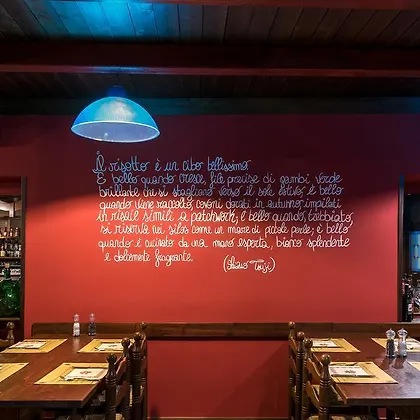 Il risotto è un cibo bellissimo.
È bello quando cresce, file precise di gambi verde
brillante che si stagliano verso il sole estivo. È bello
quando viene raccolto, covoni dorati in autunno, impilati
in risaie simili a patchwork; è bello quando, trebbiato,
si riversa nei silos come un mare di piccole perle; è bello
quando è cucinato da una mano esperta, bianco splendente
e dolcemente fragrante.